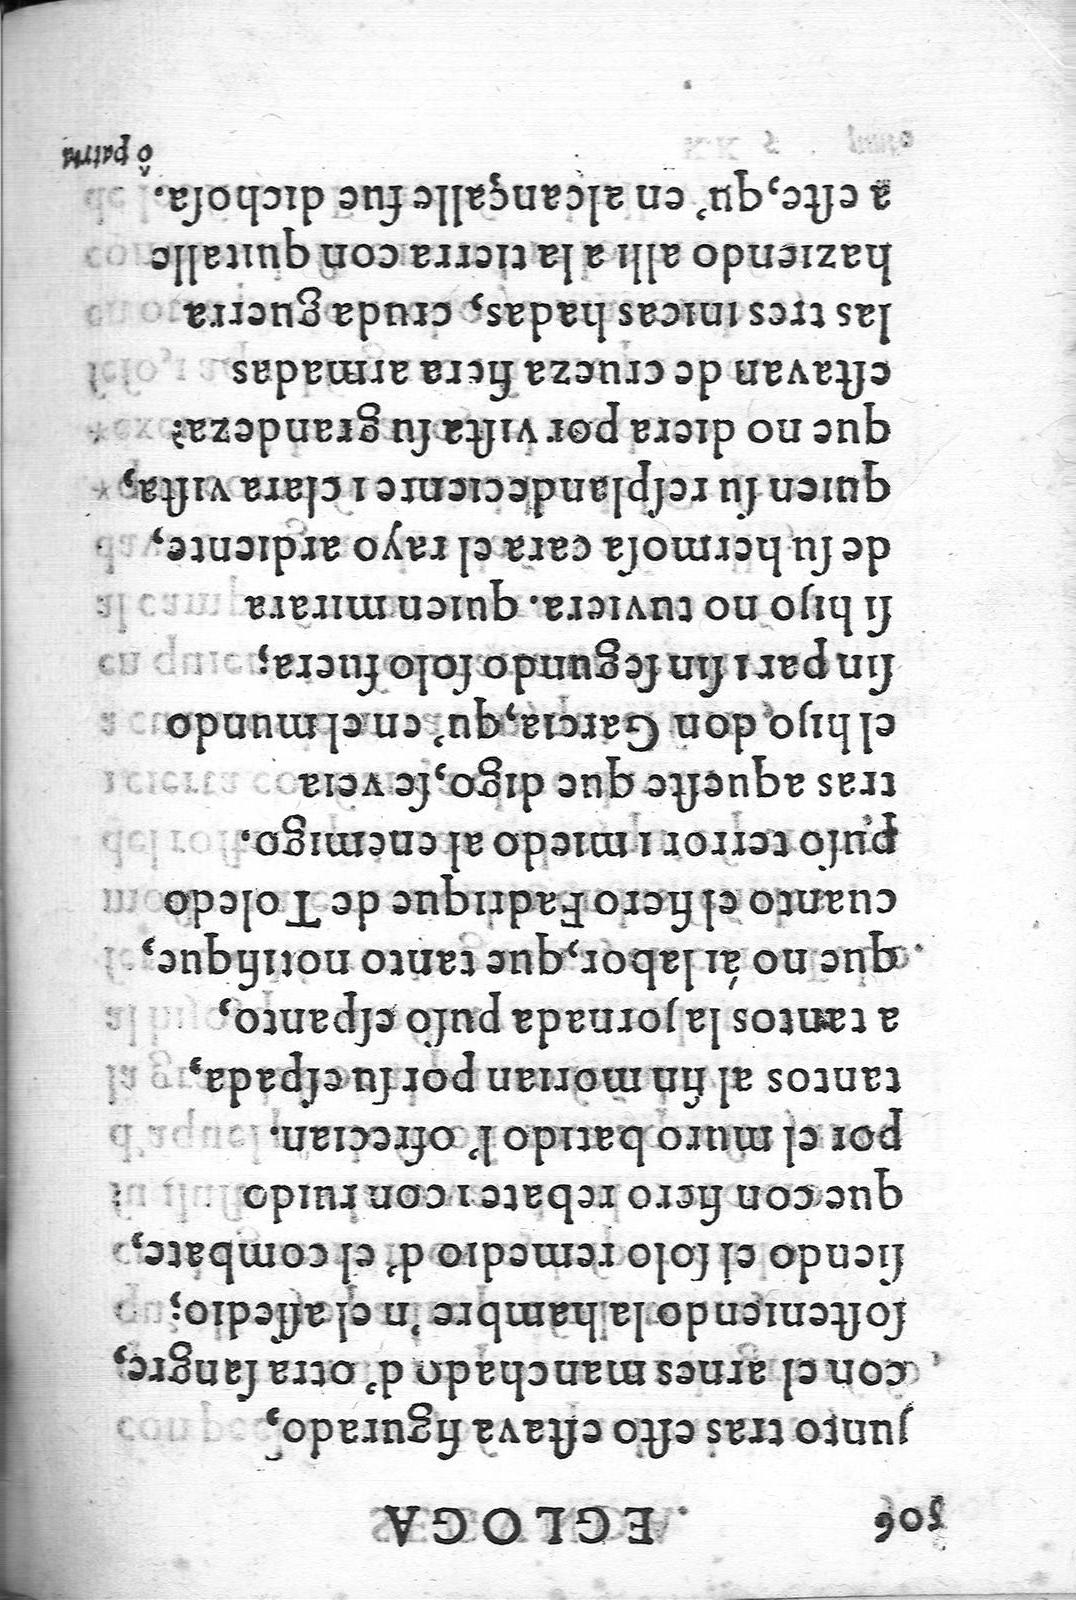 506 EGLOGA
junto tras esto estava figurado,
con el arnes manchado d' otra sangre,
sosteniendo la hambre 'n el assedio;
siendo el solo remedio d' el combate,
que con fiero rebate i con ruido
por el muro batido l' ofrecian.
tantos al fin morian por su espada,
a tantos la jornada puso espanto,
que no ái labor, que tanto notifique,
cuanto el fiero Fadrique de Toledo
puso terror i miedo al enemigo.
tras aqueste que digo, se veia
el hijo don Garcia, qu' en el mundo
sin par i sin segundo solo fuera;
si hijo no tuviera. quien mirara
de su hermosa cara el rayo ardiente,
quien su resplandeciente i clara vista,
que no diera por vista su grandeza?
estavan de crueza fiera armadas
las tres inicas hadas, cruda guerra
haziendo alli a la tierra con quitalle
a este, qu' en alcançalle fue dichosa.
ô patria